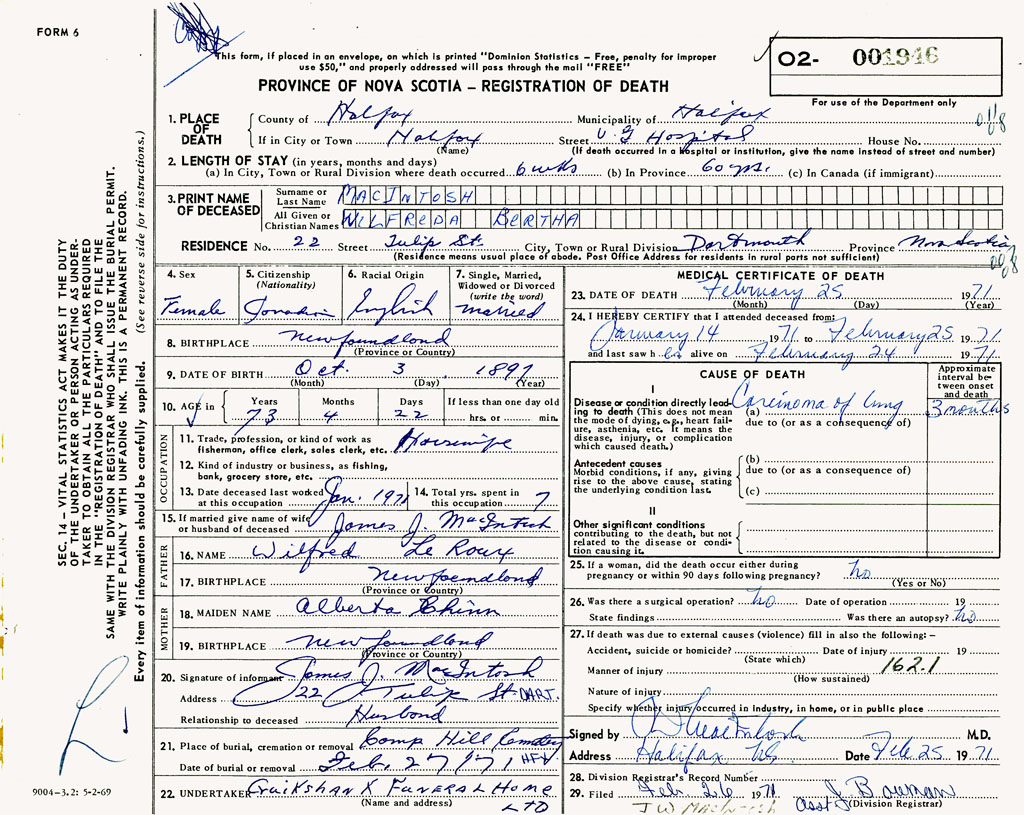 FORM 6
This form, if placed in an envelope, on which is printed "Dominion Statistics – Free, penalty for improper
use $50," and properly addressed will pass through the mail "FREE"
O2- 001946
For use of the Department only
PROVINCE OF NOVA SCOTIA – REGISTRATION OF DEATH
1. PLACE OF DEATH
County of Halifax Municipality of Halifax
If in City or Town Halifax Street V G Hospital House No.
(Name) (If death occurred in a Hospital or Institution, give the name instead of street and number)
2. LENGTH OF STAY (in years, months and days)
(a) In City, Town or Rural Division where death occurred 6 wks (b) In Province 60 yrs. (c) In Canada (if immigrant)
3. PRINT NAME OF DECEASED
Surname or Last Name MACINTOSH
All Given or Christian Names WILFREDA BERTHA
RESIDENCE No. 22 Street Tulip St. City, Town or Rural Division Dartmouth Province Nova Scotia
(Residence means usual place of abode. Post Office Address for residents in rural parts not sufficient)
4. Sex
Female
5. Citizenship
(Nationality)
Canadian
6. Racial Origin
English
7. Single, Married,
Widowed or Divorced
(write the word)
married
8. BIRTHPLACE Newfoundland
(Province or Country)
9. DATE OF BIRTH Oct. 3, 1897
(Month) (Day) (Year)
10. AGE in Years Months Days If less than one day old
73 4 22 hrs. or min.
OCCUPATION
11. Trade, profession, or kind of work as
fisherman, office clerk, sales clerk, etc. Housewife
12. Kind of industry or business, as fishing,
bank, grocery store, etc.
13. Date deceased last worked
at this occupation Jan. 1971
14. Total yrs. spent in
this occupation 7
15. If married give name of wife
or husband of deceased James J. MacIntosh
FATHER
16. NAME Wilfred Le Roux
17. BIRTHPLACE Newfoundland
(Province or Country)
MOTHER
18. MAIDEN NAME Alberta Chinn
19. BIRTHPLACE Newfoundland
(Province or Country)
20. Signature of informant James J. MacIntosh
Address 22 Tulip St DART.
Relationship to deceased Husband
21. Place of burial, cremation or removal Camp Hill Cemetery
Date of burial or removal Feb. 27/71 HFX
22. UNDERTAKER Cruikshank Funeral Home
(Name and address) LTD
MEDICAL CERTIFICATE OF DEATH
23. DATE OF DEATH February 25 1971
(Month) (Day) (Year)
24. I HEREBY CERTIFY that I attended deceased from:
January 14 1971 to February 25 1971
and last saw h er alive on February 24 1971
CAUSE OF DEATH
Approximate
interval be-
tween onset
and death
I
Disease or condition directly lead-
ing to death (This does not mean
the mode of dying, e.g., heart fail-
ure, asthenia, etc. It means the
disease, injury, or complication
which caused death.)
(a) Carcinoma of lung 3 months
due to (or as a consequence of)
Antecedent causes
Morbid conditions, if any, giving
rise to the above cause, stating
the underlying condition last.
(b)
due to (or as a consequence of)
(c)
II
Other significant conditions
contributing to the death, but not
related to the disease or condi-
tion causing it.
25. If a woman, did the death occur either during
pregnancy or within 90 days following pregnancy? no
(Yes or No)
26. Was there a surgical operation? no Date of operation 19
State findings Was there an autopsy? no
27. If death was due to external causes (violence) fill in also the following: –
Accident, suicide or homicide? Date of injury 19
(State which)
Manner of injury 162.1
(How sustained)
Nature of injury
Specify whether injury occurred in industry, in home, or in public place
Signed by M.D.
Address Halifax NS. Date Feb 25 1971
28. Division Registrar's Record Number
29. Filed Feb 26 1971 J Bauman
J W MacIntosh Asst (Division Registrar)
SEC. 14 – VITAL STATISTICS ACT MAKES IT THE DUTY
OF THE UNDERTAKER OR PERSON ACTING AS UNDER-
TAKER TO OBTAIN ALL THE PARTICULARS REQUIRED
IN THE "REGISTRATION OF DEATH" AND TO FILE THE
SAME WITH THE DIVISION REGISTRAR WHO SHALL ISSUE THE BURIAL PERMIT.
WRITE PLAINLY WITH UNFADING INK. THIS IS A PERMANENT RECORD.
Every item of information should be carefully supplied. (See reverse side for instructions.)
9004-3.2: 5-2-69